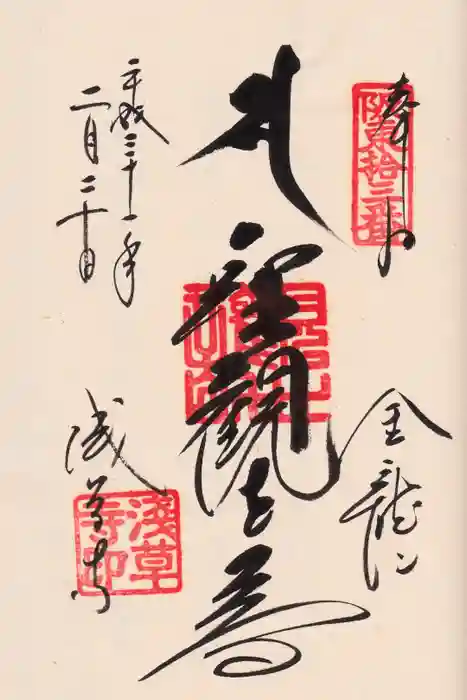 奉拝
阪東拾三番
金龍山
聖観世音
平成三十一年
二月二十日
浅草寺
淺草寺印